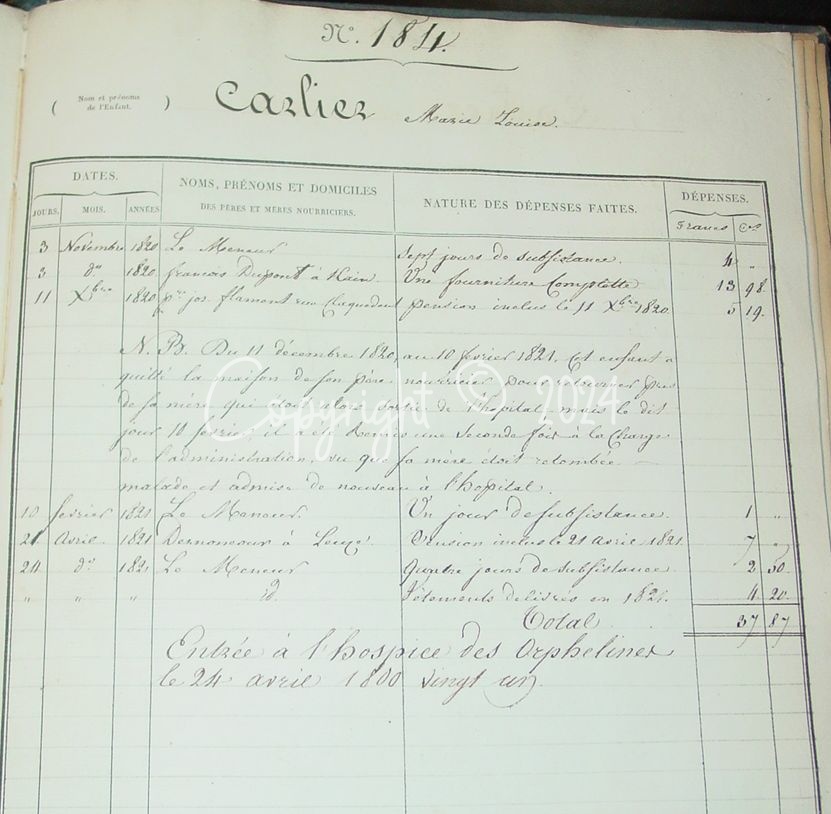 N.° 184.
( Nom et prénoms de l'Enfant. ) Carlier Marie Louise.
DATES. NOMS, PRÉNOMS ET DOMICILES DES PÈRES ET MÈRES NOURRICIERS. NATURE DES DÉPENSES FAITES. DÉPENSES.
JOURS. MOIS. ANNÉES Francs Ces
3 Novembre 1820 Le Meneur Sept jours de subsistance. 4 "
3 do 1820 francois Dupont à Kain. Une fourniture Complette 13 98
11 Xbre 1820 pre jos. flament rue Claquedent pension inclus le 11 Xbre 1820. 5 19.
N. B. Du 11 décembre 1820, au 10 février 1821, Cet enfant a
quitté la maison de son père nourricier pour retourner près
de sa mère qui étoit alors sortie de l'hopital mais le dit
jour 10 fevrier il a été Remis une Seconde fois à la Charge
de l'administration, vu que sa mère étoit retombée
malade et admise de nouveau à l'hopital.
10 fevrier 1821 Le Meneur Un jour de subsistance. 1 "
21 Avril 1821 à Leuze. Pension inclus le 21 Avril 1821 7 "
24 do 1821 Le Meneur Quatre jours de subsistance 2 50.
" " " id Vêtements délivrés en 1821. 4 20.
Total 37 87
Entrée à l'hospice des Orphelines
le 24 avril 1800 vingt un
Copyright © 2024